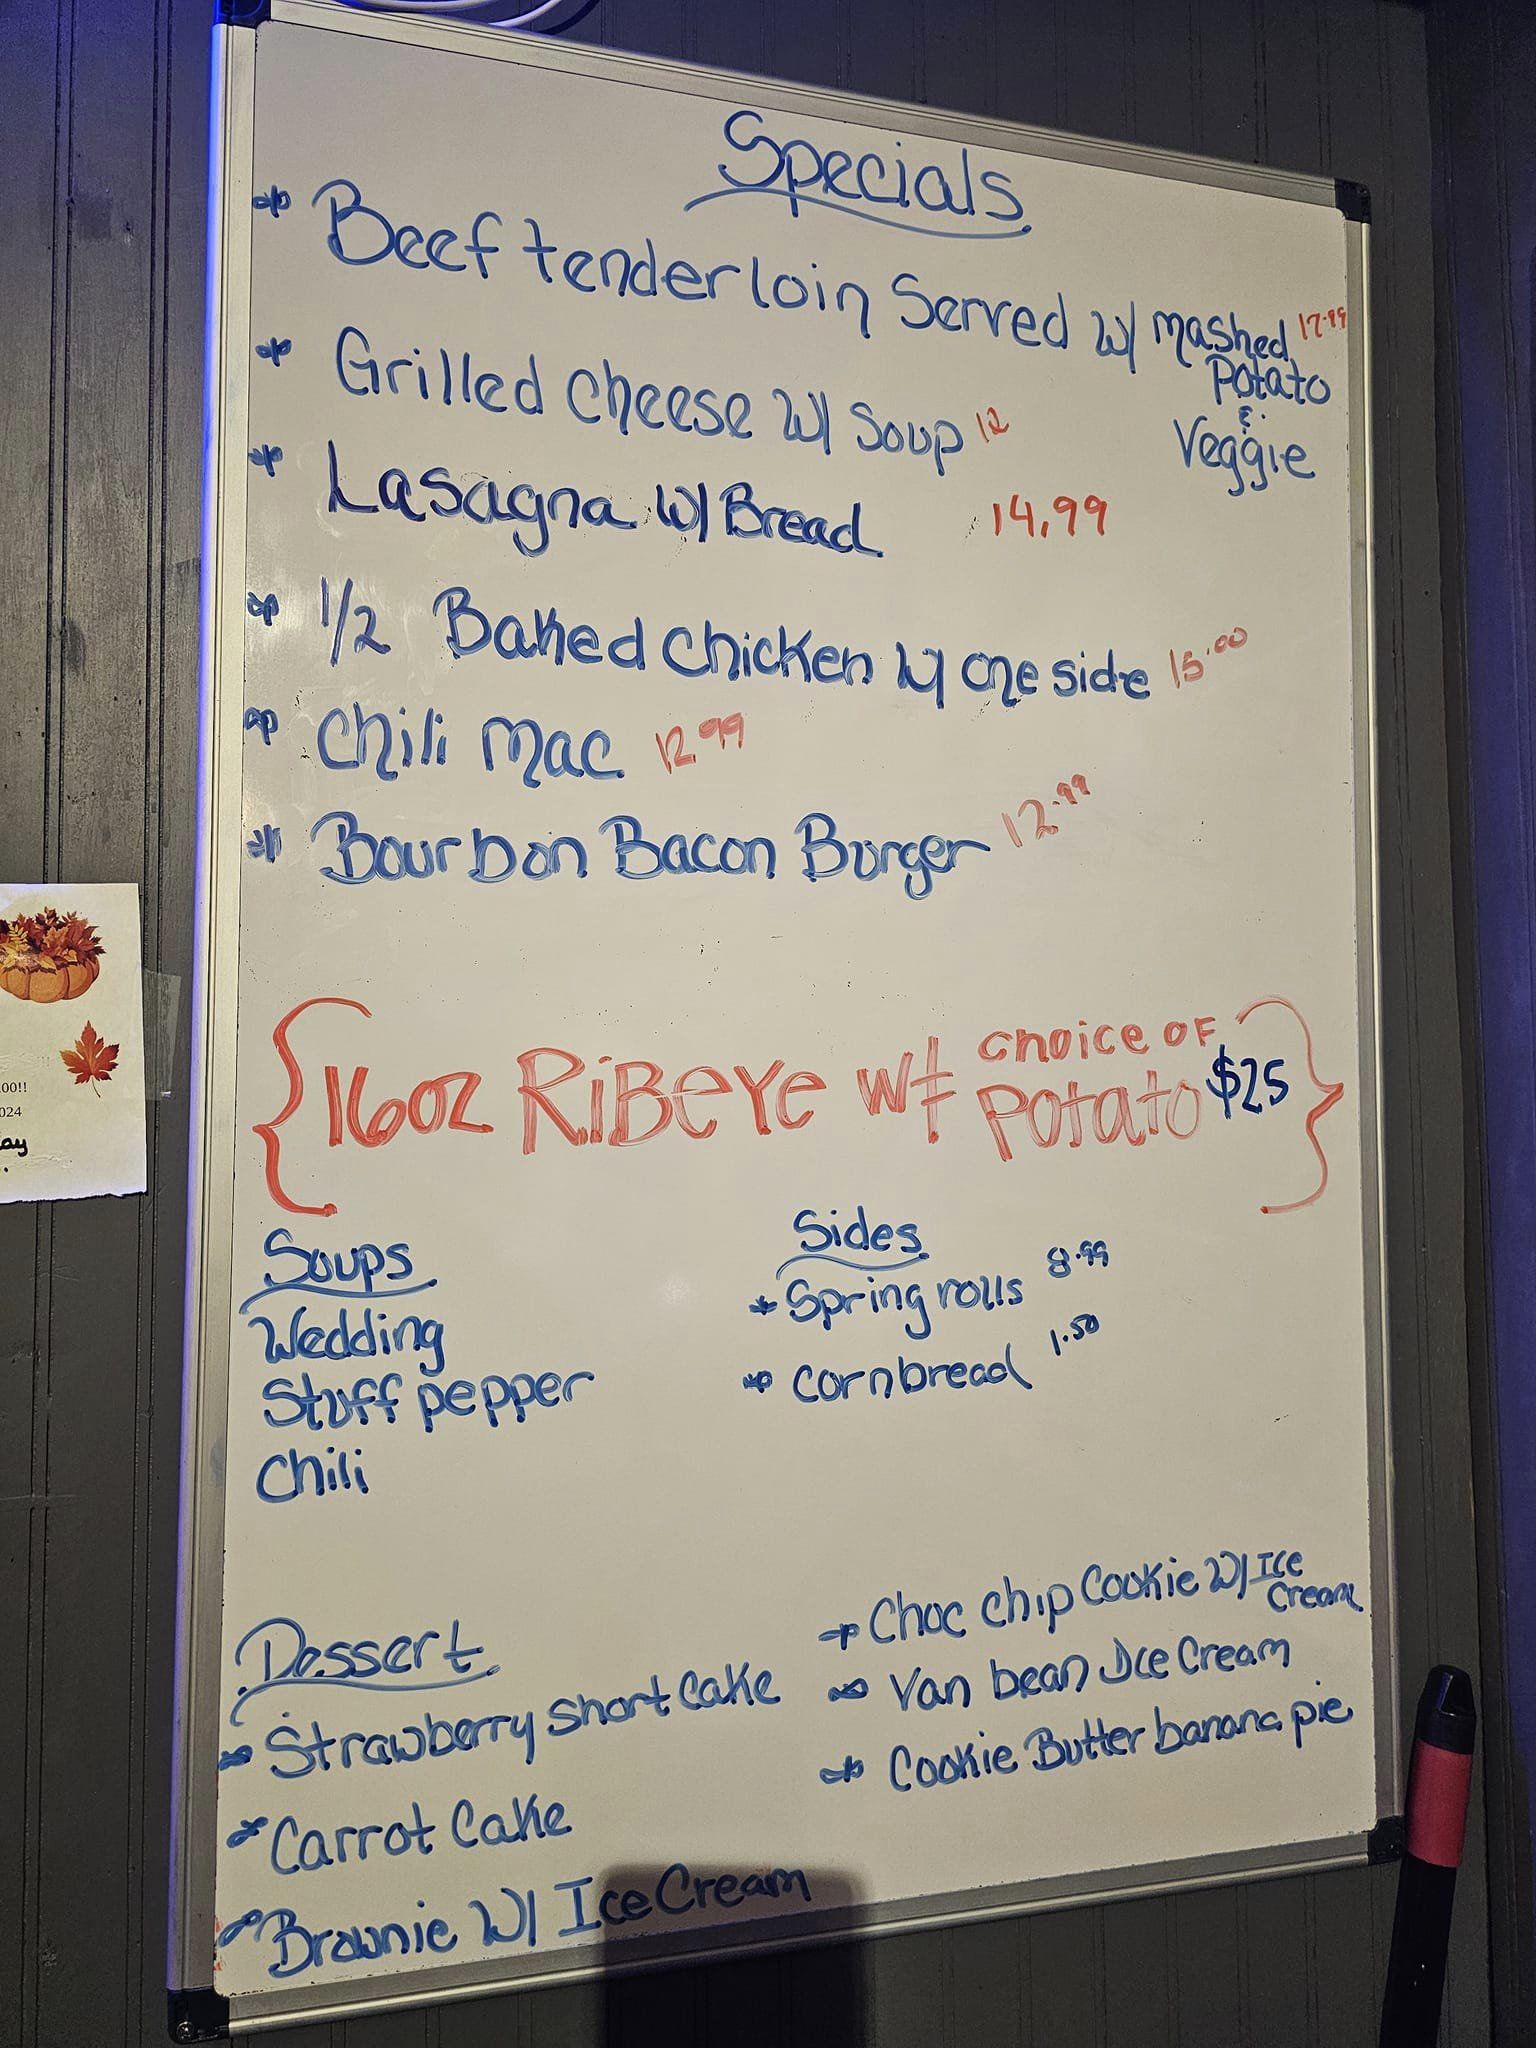 Specials
* Beef tenderloin Served w/ mashed 17.99
Potato
&
Veggie
* Grilled Cheese w/ Soup 12
* Lasagna w/ Bread 14.99
* 1/2 Baked Chicken w/ one side 15.00
* Chili Mac 12.99
* Bourbon Bacon Burger 12.99
{ 16oz RiBeye wt choice of Potato $25 }
Soups
Wedding
Stuff pepper
Chili
Sides
* Spring rolls 8.99
* Cornbread 1.50
Dessert
* Strawberry short Cake
* Carrot Cake
* Brownie w/ Ice Cream
* Choc chip Cookie w/ Ice Cream
* Van bean Ice Cream
* Cookie Butter banana pie
00!!
024
ay